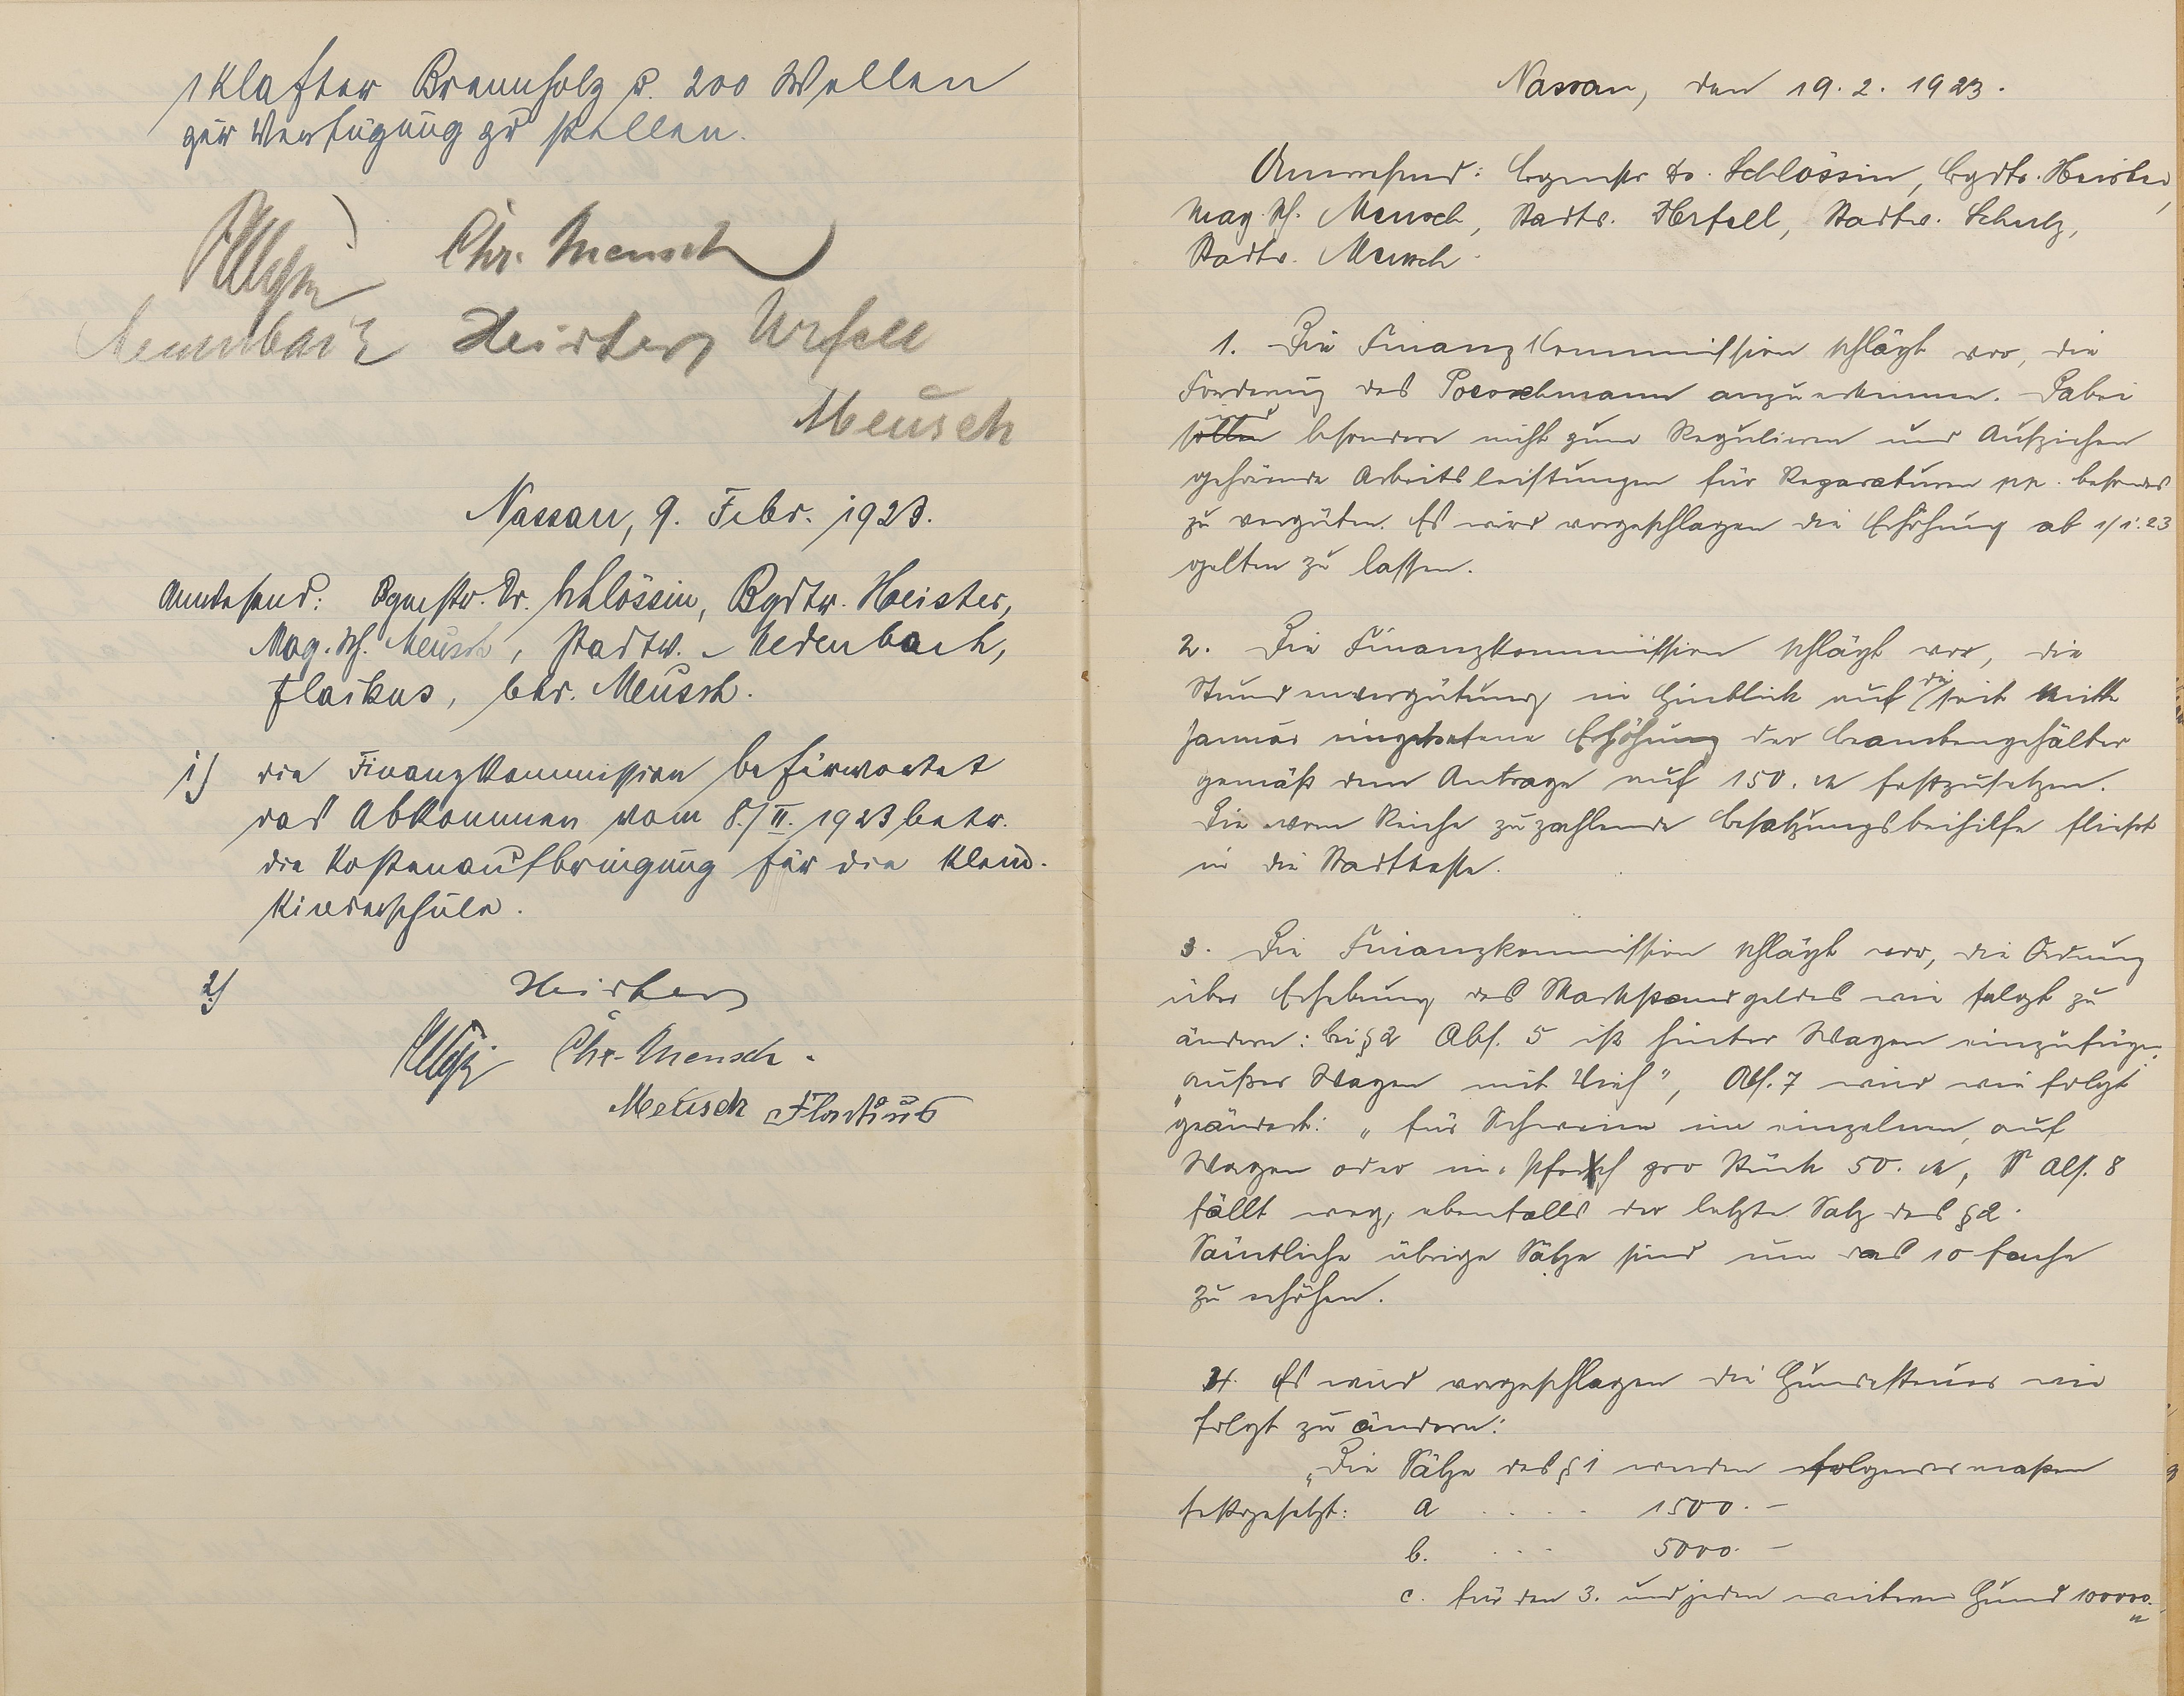 1 Klafter Brennholz u. 200 Wellen
zur Verfügung zu stellen.
Chr. Mensch
Heister Urfell
Meusch
Nassau, 9. Febr. 1923.
Anwesend: Bgmstr. Dr. Schlössin, Bgdtr. Heister,
Mag. Sch. Meusch, Stadtv. Medenbach,
Flaikus, bes. Meusch.
1) die Finanzkommission befürwortet
das Abkommen vom 8./II. 1923 betr.
die Kostenaufbringung für die Klein-
Kinderschule.
2)
Heister
Chr. Mensch.
Meusch
Nassau, den 19. 2. 1923.
Anwesend: Bgmstr Dr. Schlössin, Bgdtr. Heister,
Mag. Sch. Mensch, Stadtv. Urfell, Stadtv. Schulz,
Stadtv. Meusch.
1. Die Finanzkommission schlägt vor, die
Forderung des anzuerkennen. Dabei
sind
sollen besondere nicht zum Regulieren und Aufziehen
gehörende Arbeitsleistungen für Reparaturen pp. besonders
zu vergüten. Es wird vorgeschlagen die Erhöhung ab 1/1.23
gelten zu lassen.
2. Die Finanzkommission schlägt vor, die
Stundenvergütung in Hinblick auf die seit Mitte
Januar eingetretene Erhöhung der Beamtengehälter
gemäß dem Antrage auf 150. M festzusetzen.
Die vom Reiche zu zahlende Besatzungsbeihilfe fließt
in die Stadtkasse.
3. Die Finanzkommission schlägt vor, die Ordnung
über Erhebung des Marktstandgeldes wie folgt zu
ändern: bei § 2 Abs. 5 ist hinter Wagen einzufügen
„außer Wagen mit Vieh", Abs. 7 wird wie folgt
geändert: „für Schweine im einzelnen, auf
Wagen oder im Pferch pro Stück 50. M, Abs. 8
fällt weg, ebenfalls der letzte Satz des § 2.
Sämtliche übrige Sätze sind um das 10 fache
zu erhöhen.
4. Es wird vorgeschlagen die Hundesteuer wie
folgt zu ändern:
„Die Sätze des § 1 werden folgendermaßen
festgesetzt: a . . . . 1500. –
b. . . . 5000. –
c. für den 3. und jeden weiteren Hund 10000.
"